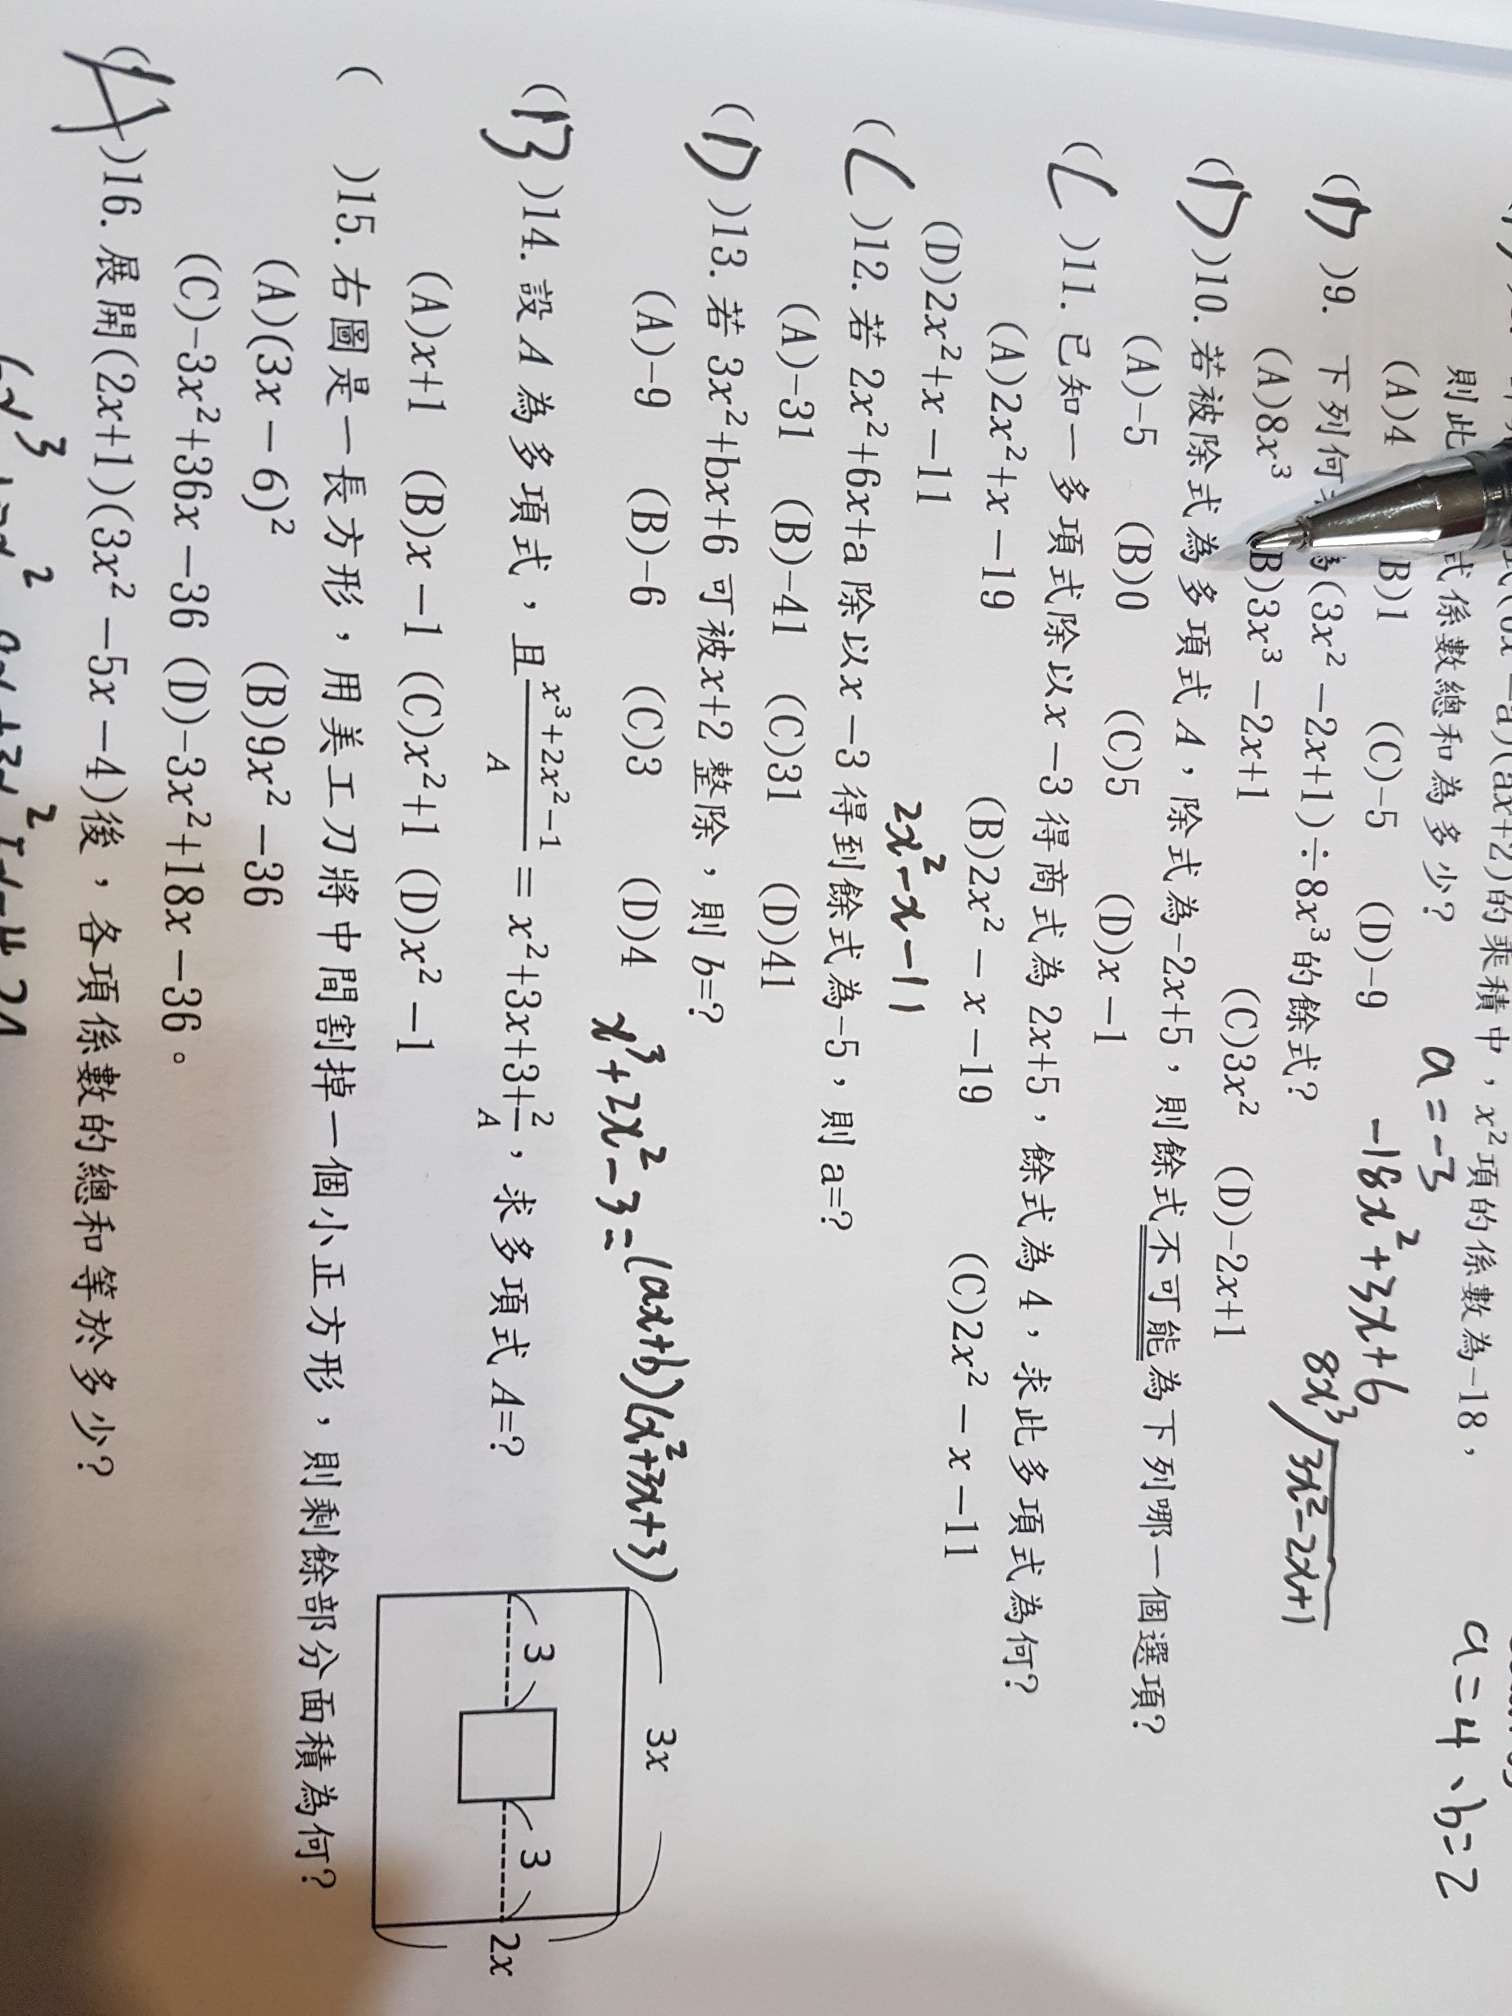 (ax+2)的乘積中，x²項的係數為-18，
則此 式係數總和為多少？
(A)4 B)1 (C)-5 (D)-9
a=-3
-18x²+3x+6
a=4、b=2
(D)9. 下列何 為(3x²-2x+1)÷8x³的餘式？
(A)8x³ (B)3x³-2x+1 (C)3x² (D)-2x+1
8x³ 3x²-2x+1
(D)10. 若被除式為多項式A，除式為-2x+5，則餘式不可能為下列哪一個選項？
(A)-5 (B)0 (C)5 (D)x-1
(C)11. 已知一多項式除以x-3得商式為2x+5，餘式為4，求此多項式為何？
(A)2x²+x-19 (B)2x²-x-19 (C)2x²-x-11
(D)2x²+x-11
2x²-x-11
(C)12. 若2x²+6x+a除以x-3得到餘式為-5，則a=?
(A)-31 (B)-41 (C)31 (D)41
(D)13. 若3x²+bx+6可被x+2整除，則b=?
(A)-9 (B)-6 (C)3 (D)4
x³+2x²-3=(ax+b)(x²+3x+3)
(B)14. 設A為多項式，且x³+2x²-1/A=x²+3x+3+2/A，求多項式A=?
(A)x+1 (B)x-1 (C)x²+1 (D)x²-1
( )15. 右圖是一長方形，用美工刀將中間割掉一個小正方形，則剩餘部分面積為何？
(A)(3x-6)² (B)9x²-36
(C)-3x²+36x-36 (D)-3x²+18x-36。
3x
3
3
2x
(A)16. 展開(2x+1)(3x²-5x-4)後，各項係數的總和等於多少？